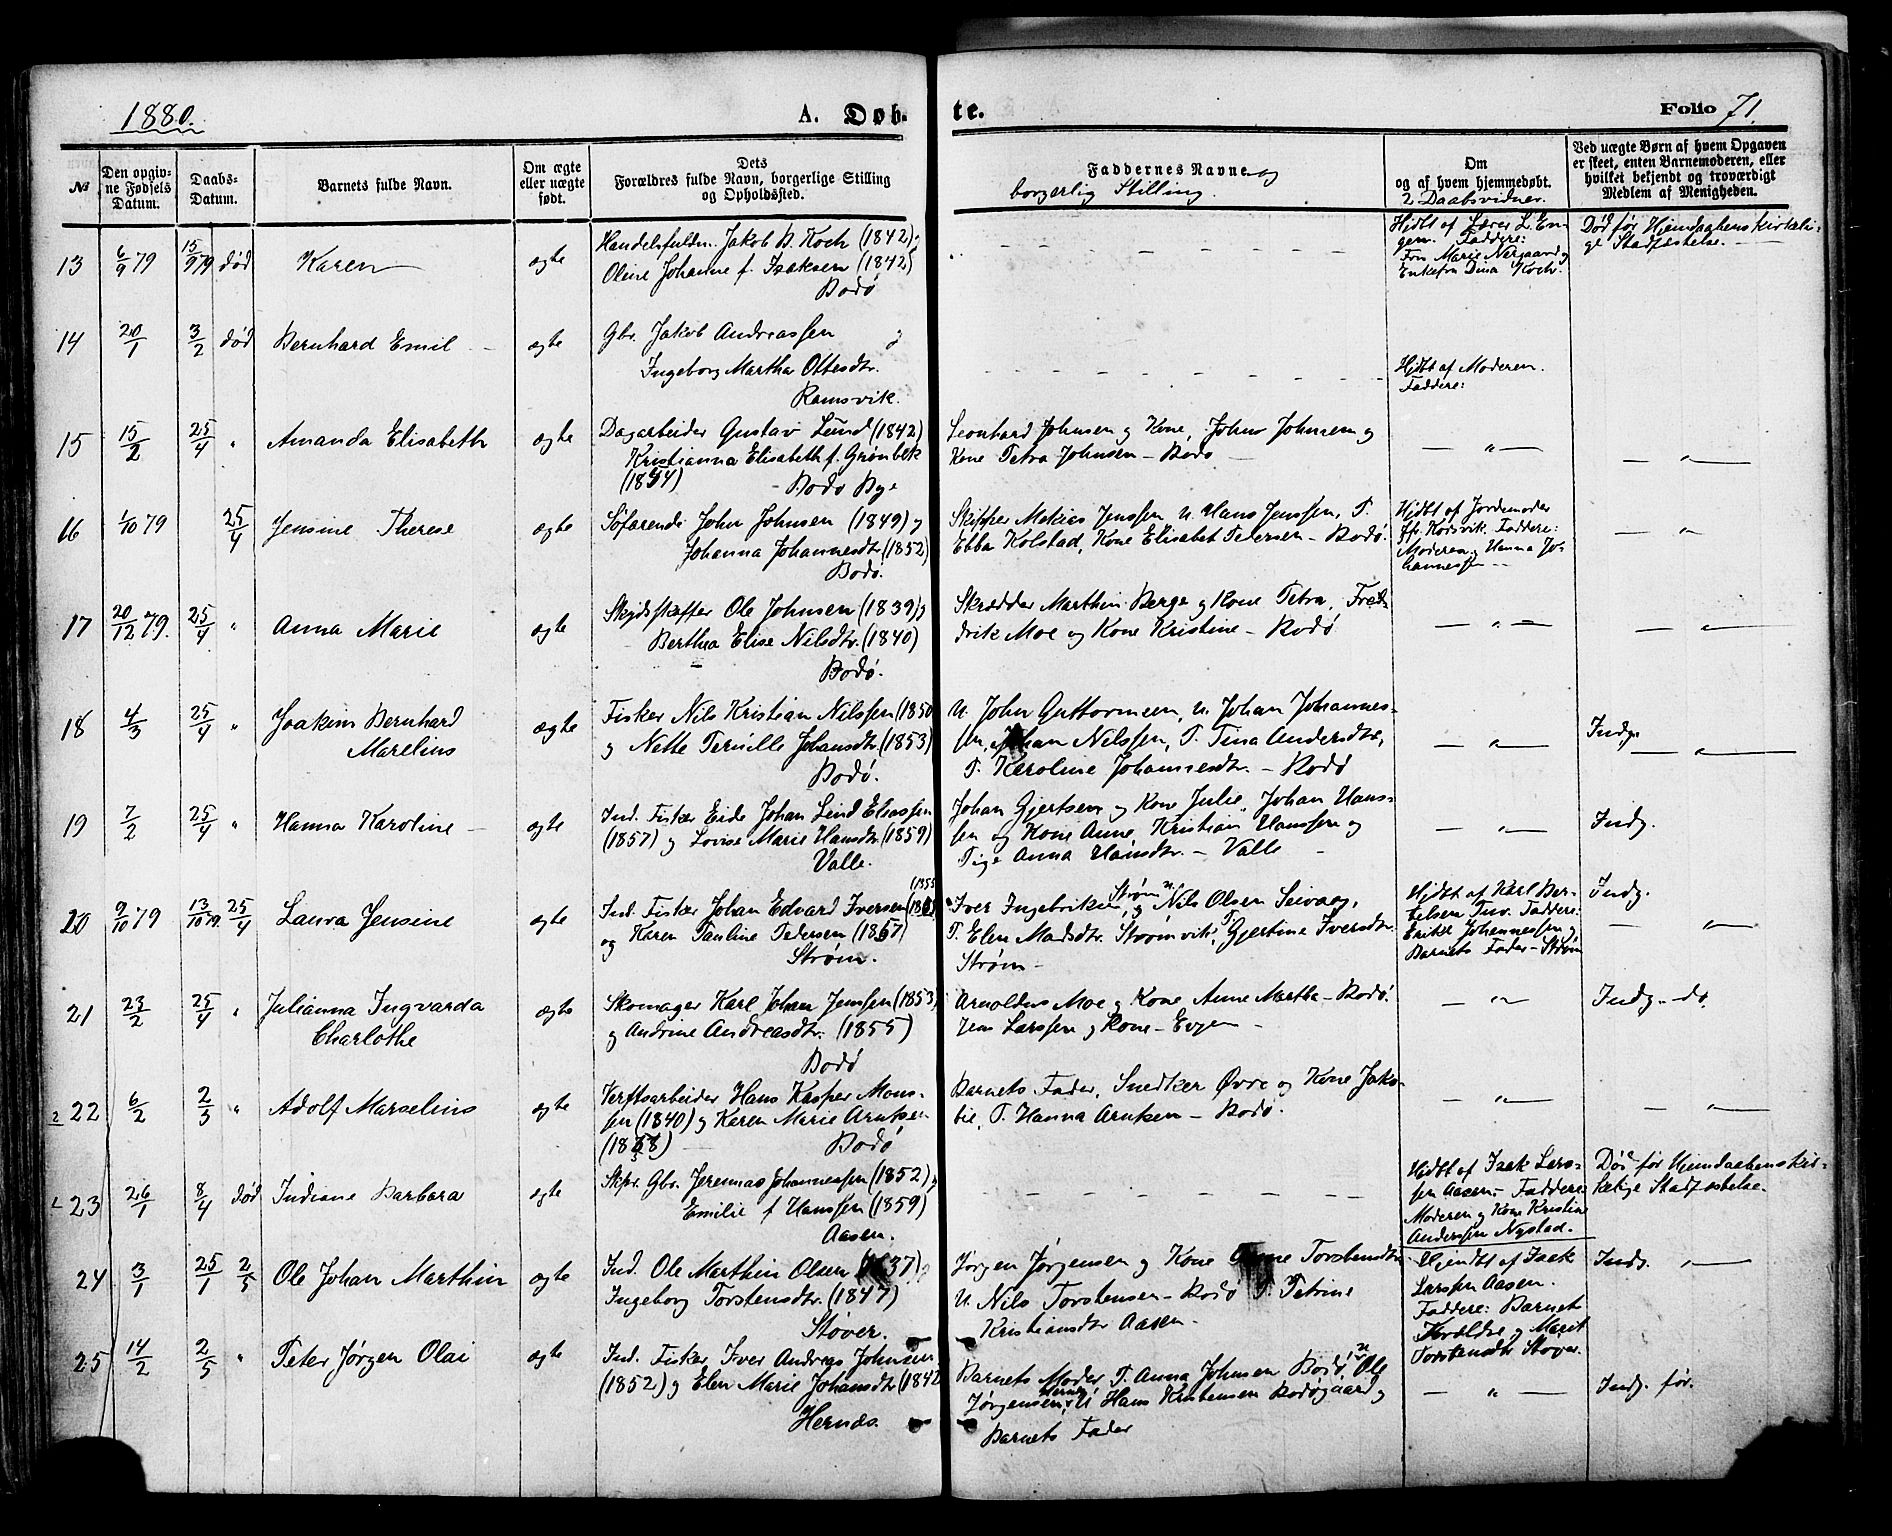 1880.
A. Døb-
te.
Folio 71.
№
Den opgiv-
ne Fødsels
Datum.
Daabs-
Datum.
Barnets fulde Navn.
Om ægte
eller uægte
født.
Dets
Forældres fulde Navn, borgerlige Stilling
og Opholdssted.
Faddernes Navne og
borgerlig Stilling.
Om
og af hvem hjemmedøbt.
2 Daabsvidner.
Ved uægte Børn af hvem Opgaven
er skeet, enten Barnemoderen, eller
hvilket bekjendt og troværdigt
Medlem af Menigheden.
13 6/9 79 15/9 79 død Karen ægte
Handelsfuldm. Jakob B. Koch (1842) og
Oline Johanne f. Isaksen (1842)
Bodø
Hjdbt af Lærer L. En-
gen. Faddere:
Fru Marie Nergaard og
Enkefru Dina Koch.
Død før Hjemdaabens kirkeli-
ge Stadfæstelse.
14 20/1 3/2 død Bernhard Emil ægte
Gbr. Jakob Andreassen og
Ingeborg Martha Ottesdtr.
Ramsvik.
Hjdbt af Moderen.
Faddere:
15 15/2 25/4 " Amanda Elisabeth ægte
Dagarbeider Gustav Lund (1842)
Kristianna Elisabeth f. Grønbek
(1854) - Bodø Bye
Leonhard Johnsen og Kone, Johns Johnsen og
Kone Petra Johnsen - Bodø
— " —
— " —
16 1/10 79 25/4 Jensine Therese ægte
Søfarende John Johnsen (1849) og
Johanna Johannesdtr (1852)
Bodø.
Skipper Mekias Jenssen, U. Hans Jenssen, P.
Ebba Kolstad, Kone Elisabet Pedersen - Bodø.
Hjdbt af Jordemoder
Kodsvik. Faddere:
Moderen og Hanna Jo-
hannessen -
— " —
17 20/12 79. 25/4 " Anna Marie ægte
Skydsskaffer Ole Johnsen (1839) og
Berthea Elise Nilsdtr. (1840)
Bodø.
Skrædder Marthin Berge og Kone Petra, Fred-
drik Moe og Kone Kristine - Bodø
— " —
— " —
18 4/3 25/4 " Joakim Bernhard
Marelius ægte
Fisker Nils Kristian Nilssen (1850
og Nette Pernille Johansdtr. (1853)
Bodø.
U. John Guttormsen, U. Johan Johannes-
sen, Johan Nilssen, P. Tina Andersdtr,
P. Karoline Johannesdtr. - Bodø
— " —
Indg.
— " —
19 7/2 25/4 " Hanna Karoline - ægte
Ind. Fisker Eide Johan Lind Eliassen
(1857) og Lovise Marie Hansdtr. (1859)
Valle.
Johan Gjertsen og Kone Julie, Johan Hans-
sen og Kone Anne, Kristian Hanssen og
Pige Anna Hansdtr. - Valle -
— " —
Indg.
20 9/10 79 13/10 79. 25/4 Laura Jensine ægte
(1855
Ind. Fisker Johan Edvard Iversen
og Karen Pauline Pedersen (1857)
Strøm.
Iver Ingebriktsen, Strøm U. og Nils Olsen Seivaag,
P. Elen Madsdtr. Strømvik, P. Gjertine Iversdtr.
Strøm -
Hjdbt af Karl Ber-
telsen Tuv. Faddere:
Erikke Johannessen og
Barnets Fader - Strøm
Indg.
— " —
21 23/2 25/4 " Julianna Ingvarda
Charlothe ægte
Skomager Karl Johan Jenssen (1853)
og Andrine Andreasdtr. (1855)
Bodø
Arnoldus Moe og Kone Anne Martha - Bodø.
Jens Larssen og Kone - Evjen -
— " —
Indg. do.
22 6/2 2/5 " Adolf Marselius ægte
Verftsarbeider Hans Kasper Mons-
sen (1840) og Karen Marie Arntzen
(1858) —
Bodø
Barnets Fader, Snedker Øvre og Kone Jako-
bie, P. Hanna Arntzen - Bodø.
— " —
— " —
23 26/1 8/4 død Indiane Barbara ægte
Skpr. Gbr. Jeremias Johannessen (1852) og
Emilie f Hanssen (1859)
Aasen.
Hjdbt af Isak Lars-
sen Aasen. - Faddere:
Moderen og Kone Kristine
Anderssen Nystad.
Død før Hjemdaabens kir-
kelige Stadfæstelse.
24 3/1 25/1 2/5 Ole Johan Marthin ægte
Ind. Ole Marthin Olsen (1837) og
Ingeborg Torstensdtr. (1847)
Støver.
Jørgen Jørgensen og Kone Anne Torstensdtr
U. Nils Torstensen - Bodø P. Petrine
Kristiansdtr Aasen -
Hjemdbt af Isak
Larssen Aasen.
Faddere: Barnets
Forældre og Marit
Torstensdtr Støver.
Indg. — " —
25 14/2 2/5 " Peter Jørgen Olai ægte
Ind. Fisker Iver Andreas Johnsen
(1852) og Elen Marie Johansdtr (1842
Hernæs.
Barnets Moder, P. Anna Johnsen Bodø, U. Ole
Jørgensen, U. Hans Kristensen Bodøgaard og
Barnets Fader
— " —
Indg. før.